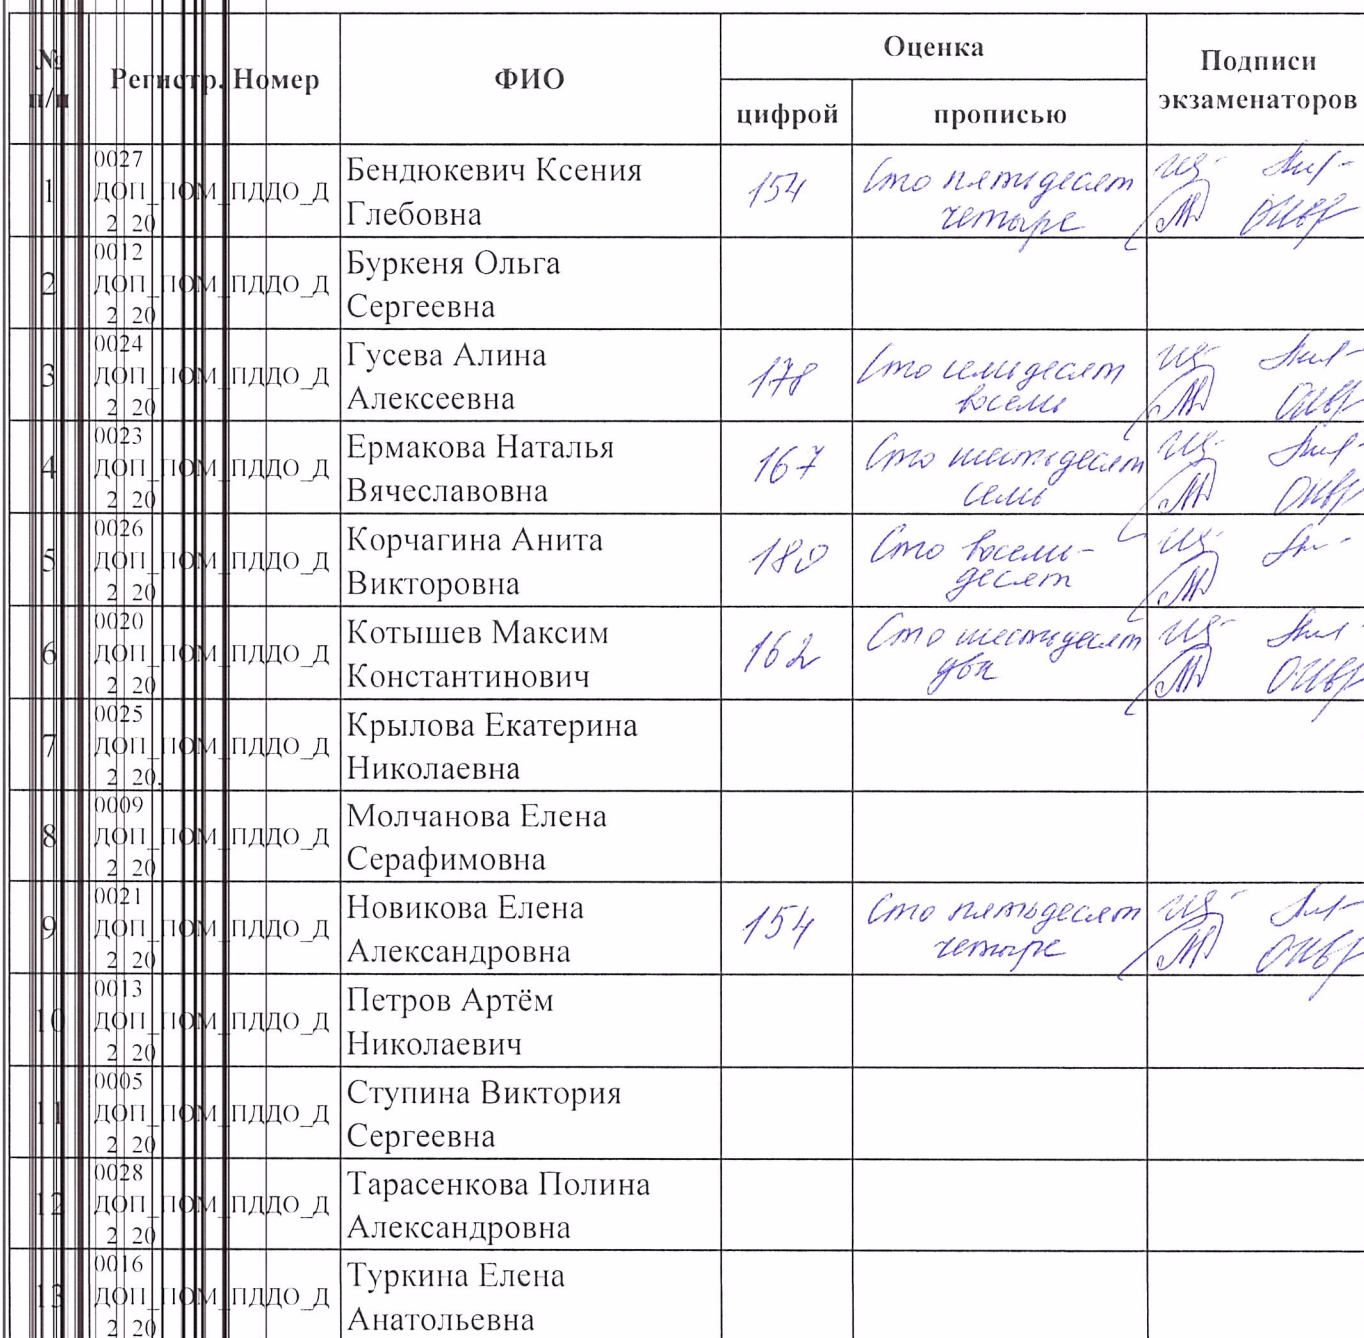 №
п/п
Регистр. Номер
ФИО
Оценка
цифрой
прописью
Подписи
экзаменаторов
1
0027
ДОП_ПОМ_ПДДО_Д
2_20
Бендюкевич Ксения
Глебовна
154
Сто пятьдесят
четыре
2
0012
ДОП_ПОМ_ПДДО_Д
2_20
Буркеня Ольга
Сергеевна
3
0024
ДОП_ПОМ_ПДДО_Д
2_20
Гусева Алина
Алексеевна
178
Сто семьдесят
восемь
4
0023
ДОП_ПОМ_ПДДО_Д
2_20
Ермакова Наталья
Вячеславовна
167
Сто шестьдесят
семь
5
0026
ДОП_ПОМ_ПДДО_Д
2_20
Корчагина Анита
Викторовна
180
Сто восемь-
десят
6
0020
ДОП_ПОМ_ПДДО_Д
2_20
Котышев Максим
Константинович
162
Сто шестьдесят
два
7
0025
ДОП_ПОМ_ПДДО_Д
2_20.
Крылова Екатерина
Николаевна
8
0009
ДОП_ПОМ_ПДДО_Д
2_20
Молчанова Елена
Серафимовна
9
0021
ДОП_ПОМ_ПДДО_Д
2_20
Новикова Елена
Александровна
154
Сто пятьдесят
четыре
10
0013
ДОП_ПОМ_ПДДО_Д
2_20
Петров Артём
Николаевич
11
0005
ДОП_ПОМ_ПДДО_Д
2_20
Ступина Виктория
Сергеевна
12
0028
ДОП_ПОМ_ПДДО_Д
2_20
Тарасенкова Полина
Александровна
13
0016
ДОП_ПОМ_ПДДО_Д
2_20
Туркина Елена
Анатольевна